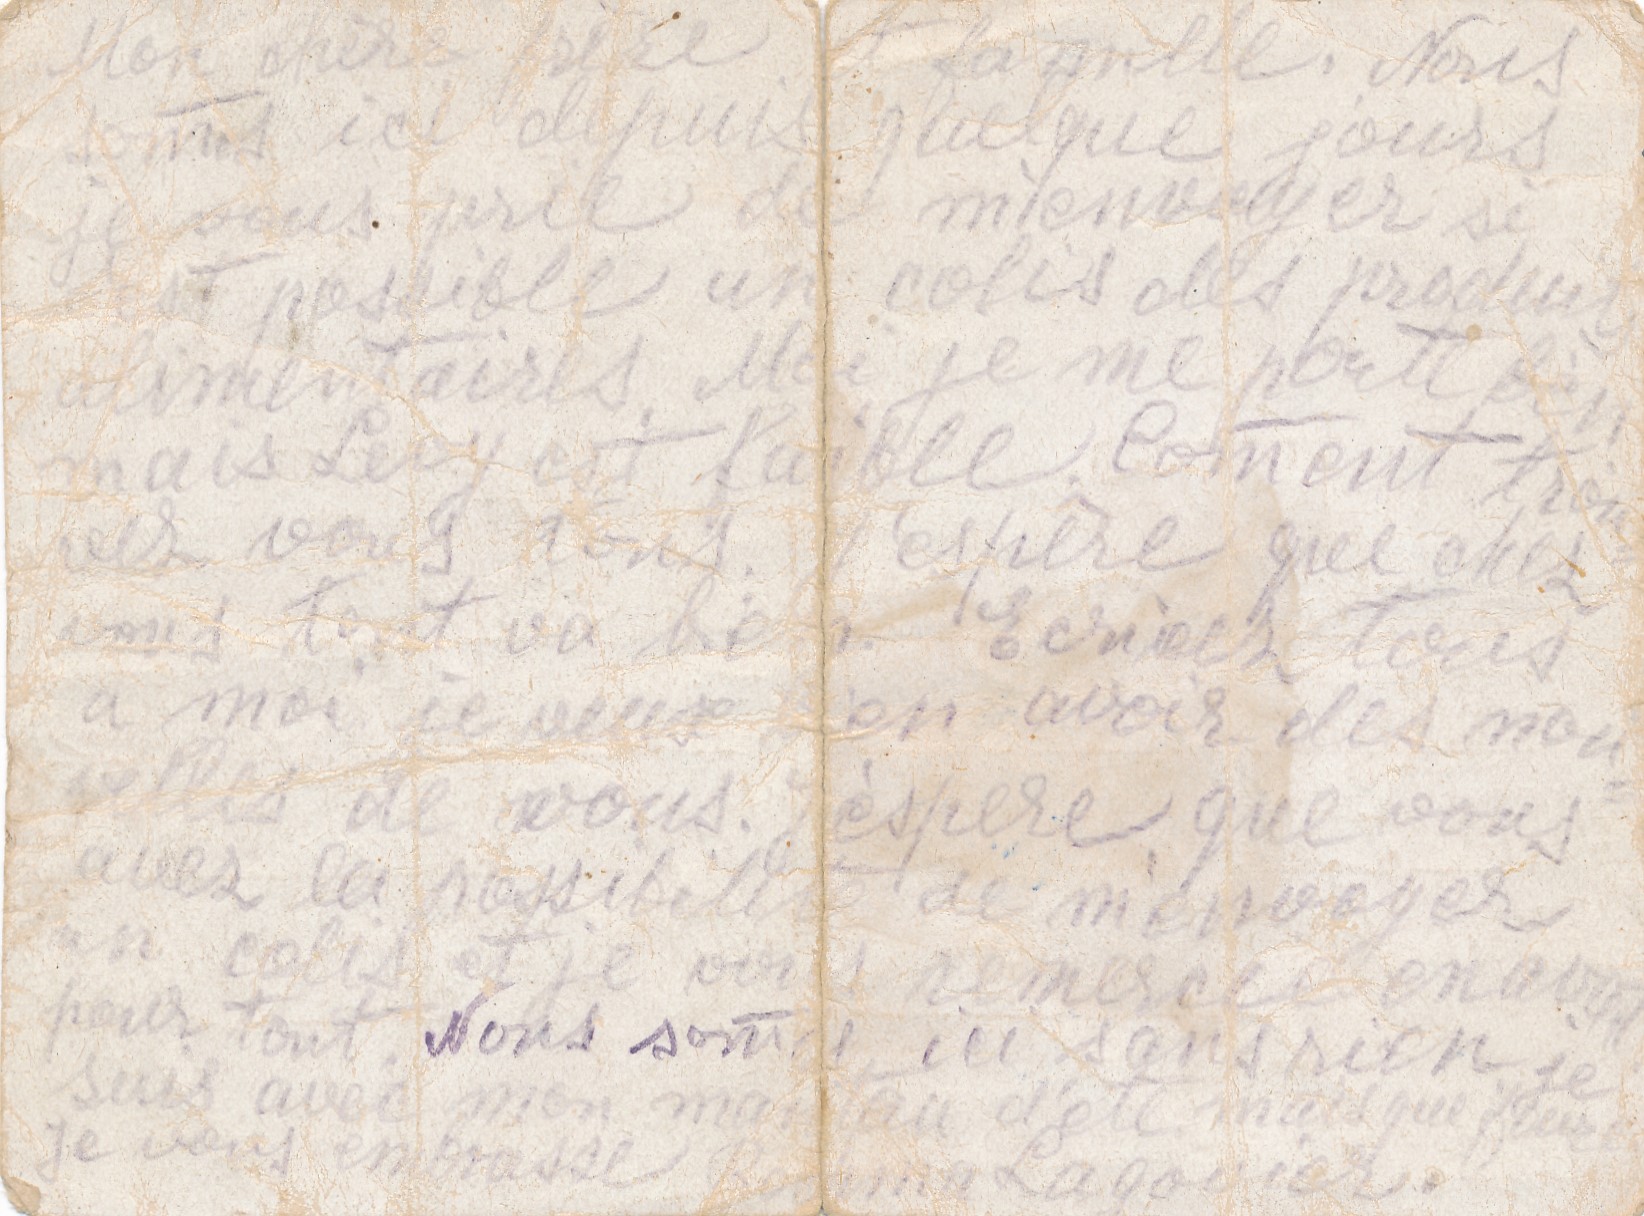 Mon chère frère et famille. Nous
somes ici depuis quelque jours
je vous prie de m'envoyer si
est possible un colis des produits
alimentaires. Moi je me porte bien
mais Levy est faible. Coment trou
vez vous tous. J'espère que chez
vous tout va bien. Ecrivez tous
a moi je veux bien avoir des nou=
velles de vous. J'éspere que vous
avez la possibilité de m'envoyer
un colis et je vous remercie en avant
pour tout. Nous somes ici sans rien je
suis avec mon manteau d'été mais que faire
Je vous embrasse Lagovier.